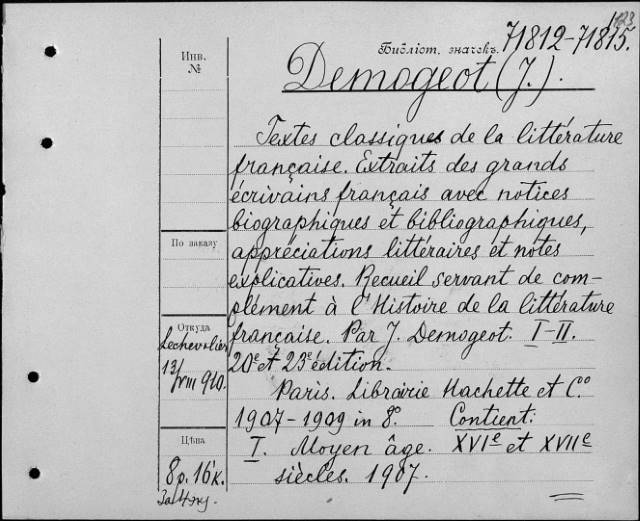 1123
71812-71815.
Библіот. значекъ.
Инв.
№
Demogeot (J.).
Textes classiques de la littérature
française. Extraits des grands
écrivains français avec notices
biographiques et bibliographiques,
По заказу
appréciations littéraires et notes
explicatives. Recueil servant de com-
plément à l'Histoire de la littérature
Откуда
française. Par J. Demogeot. I-II.
Lechevalier
20e et 23e édition.
13/VIII 910.
Paris. Librairie Hachette et Co
1907-1909 in 8o. Contient:
Цѣна
I. Moyen âge. XVIe et XVIIe
8 р. 16 к.
siècles. 1907.
За 4 экз.